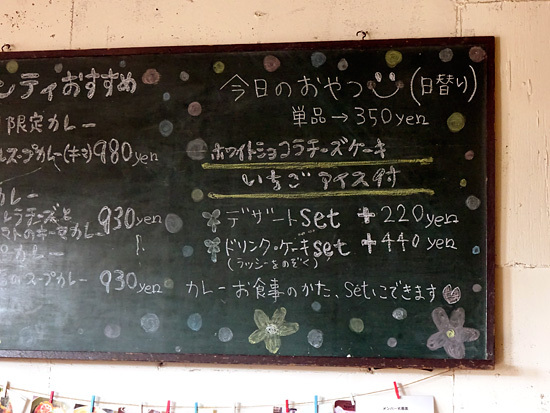 ンティおすすめ
限定カレー
スープカレー(キキ) 980yen
カレー
レラチーズと 930yen
マトのキーマカレー
カレー
スープカレー 930yen
今日のおやつ (日替り)
単品→350yen
ホワイトショコラチーズケーキ
いちごアイス付
デザートset +220yen
ドリンク・ケーキset +440yen
(ラッシーをのぞく)
カレーお食事のかた、setにできます